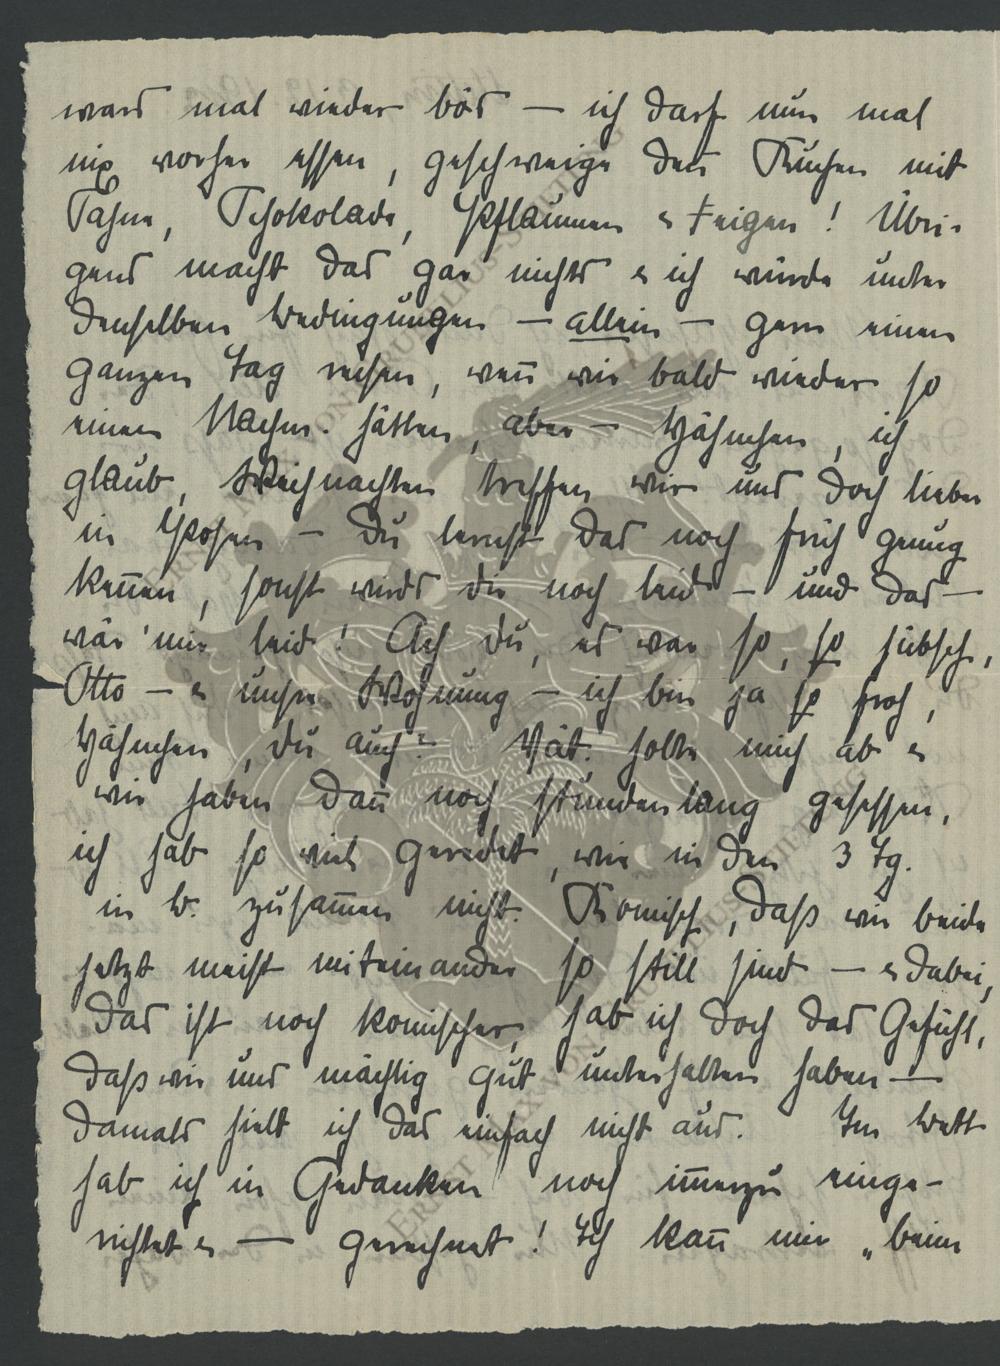 wars mal wieder bös – ich darf nun mal
nix vorher essen, geschweige den̄ Kuchen mit
Sahne, Schokolade, Pflaumen & Feigen! Übri-
gens macht das gar nichts & ich würde unter
denselben Bedingungen – allein – gern einen
ganzen Tag reisen, wen̄ wir bald wieder so
einen Nachm. hätten, aber – Hähnchen, ich
glaub, Weihnachten treffen wir uns doch lieber
in Posen – Du lernst das noch früh genug
ken̄en, sonst wirds dir noch leid – und das –
wär' mir leid! Ach du, es war so, so hübsch,
Otto – & unsre Wohnung – ich bin ja so froh,
Hähnchen, du auch? Vat. holte mich ab &
wir haben dan̄ noch stundenlang gesessen,
ich hab so viel geredet, wie in den 3 Tg.
in B. zusam̄en nicht. Komisch, daß wir beide
jetzt meist miteinander so still sind – & dabei,
das ist noch komischer, hab ich doch das Gefühl,
daß wir uns mächtig gut unterhalten haben –
damals hielt ich das einfach nicht aus. Im Bett
hab ich in Gedanken noch im̄erzu einge-
richtet & – gerechnet! Ich kan̄ mir „beim